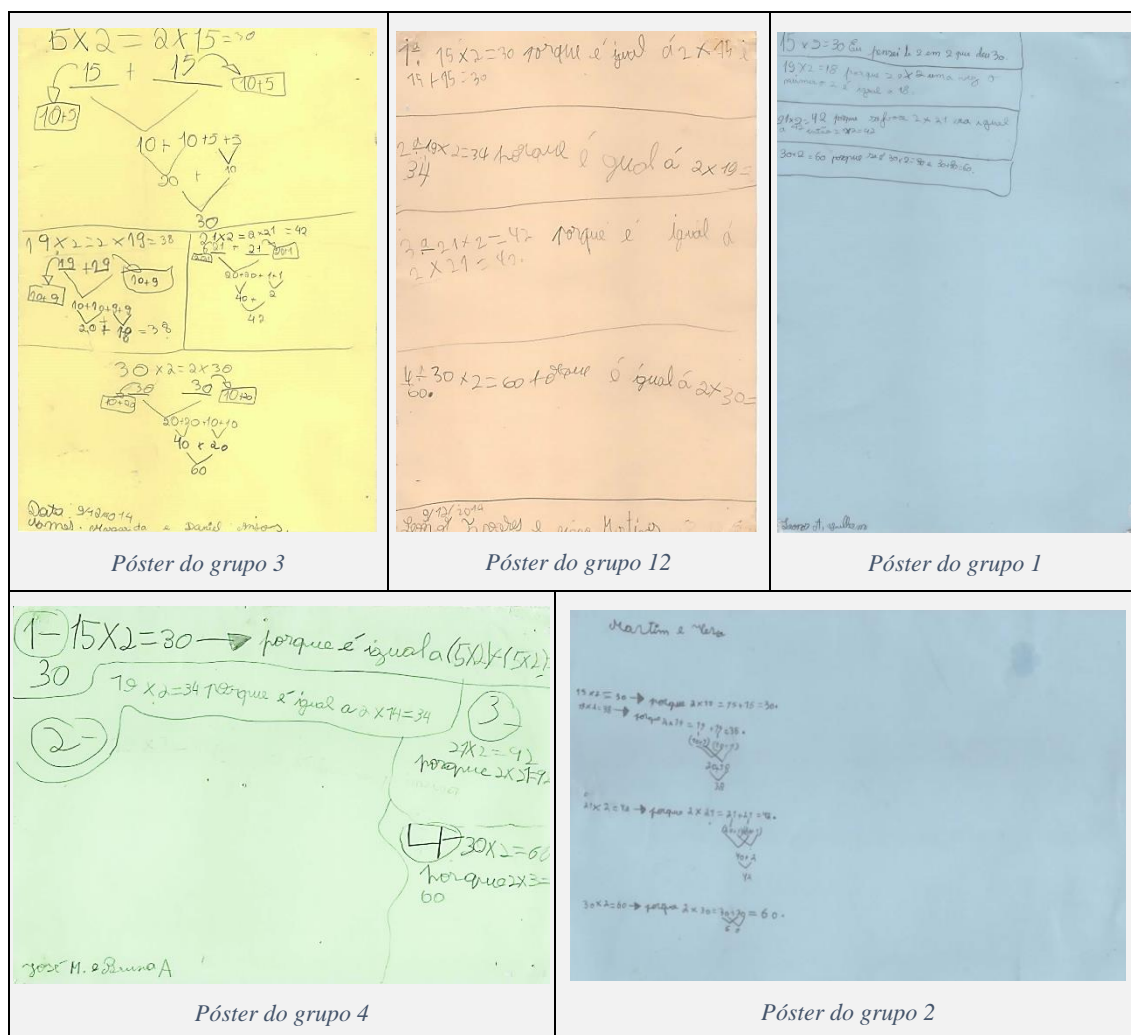 15X2 = 2X15=30
15 + 15 10+5
10+5
10+ 10+5+5
20 + 10
30
19X2=2X19=38
19 +19 10+9
10+9
10+10+9+9
20+ 18 =38
21X2= 2X21 =42
21 + 21
20+20+1+1
40+ 2
42
30 X2=2X30
30 30 10+20
10+20
20+20+10+10
40 X 20
60
Data
e Daniel
Póster do grupo 3
1ª 15X2=30 porque é igual á 2X15 é
15+15=30
2ª 19X2=34 porque é gual á 2X19=
34
3ª 21X2=42 porque é igual á
2X21=42.
4ª 30X2=60 porque é igual á 2X30=
60.
9/12/2014
e
Póster do grupo 12
15X2=30 Eu pensei de 2 em 2 que deu 30.
19X2=18 porque 20X2 uma vez o
é igual a 18.
21X2=42 porque 2X21 era igual
a
30X2=60 porque
Póster do grupo 1
1- 15X2=30 → porque é igual a (5X2)+(5X2)=
30
2- 19X2=34 porque é igual a 2X14=34
3-
21X2=42
porque 2X21=42
4 30X2=60
porque 2X3=
60
José M. e Bruna A
Póster do grupo 4
Martim e
15X2=30 → porque 2X15=15+15=30.
19X2=38 → porque 2X19=19+19=38.
20+18
38
21X2=42 → porque 2X21=21+21=42.
40+2
42
30X2=60 → porque 2X30=30+30=60.
60
Póster do grupo 2